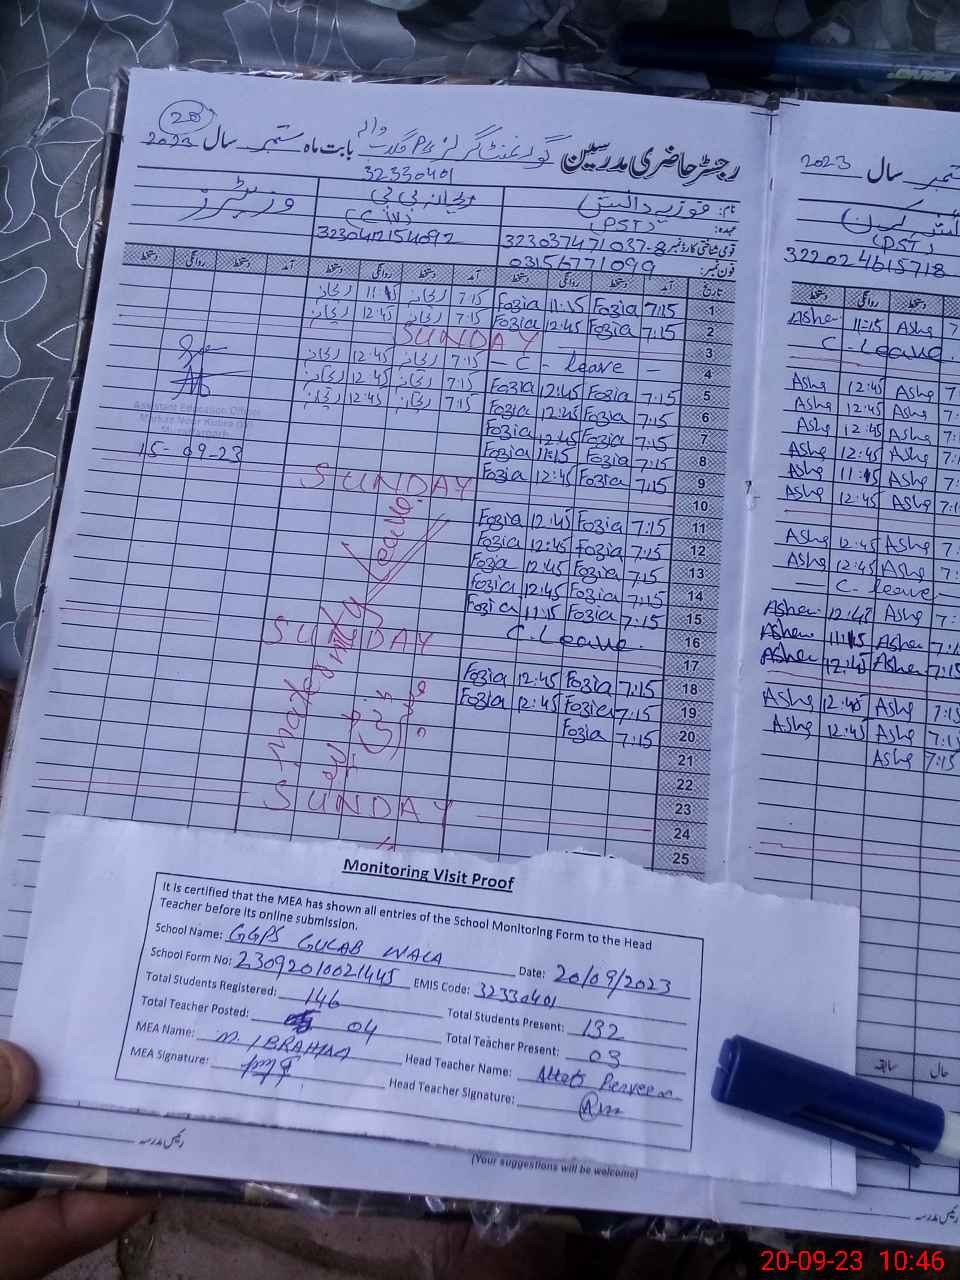 28
رجسٹر حاضری مدرسین گورنمنٹ گرلز P/S گلاب والہ بابت ماہ ستمبر سال 2023
32330401
نام: فوزیہ دالبش ریحانہ بی بی وزیٹرز
عہدہ: (PST) (C IV)
قومی شناختی کارڈ نمبر 323037471037-8
فون نمبر: 03156771099
تاریخ آمد دستخط روانگی دستخط آمد دستخط روانگی دستخط آمد دستخط روانگی دستخط
1 7:15 Fozia 11:15 Fozia 7:15 ریحانہ 11:15 ریحانہ
2 7:15 Fozia 12:45 Fozia 7:15 ریحانہ 12:45 ریحانہ
3 SUNDAY
4 - C - leave - 7:15 ریحانہ 12:45 ریحانہ
5 7:15 Fozia 12:45 Fozia 7:15 ریحانہ 12:45 ریحانہ
6 7:15 Fozia 12:45 Fozia 7:15 ریحانہ 12:45 ریحانہ
7 7:15 Fozia 12:45 Fozia
8 7:15 Fozia 11:15 Fozia
9 7:15 Fozia 12:45 Fozia
10 SUNDAY
11 7:15 Fozia 12:45 Fozia
12 7:15 Fozia 12:45 Fozia
13 7:15 Fozia 12:45 Fozia
14 7:15 Fozia 12:45 Fozia
15 7:15 Fozia 11:15 Fozia
16 C. Leave.
17 SUNDAY
18 7:15 Fozia 12:45 Fozia
19 7:15 Fozia 12:45 Fozia
20 7:15 Fozia
21
22
23
24 SUNDAY
25
Maternity Leave
Assistant Education Officer
15-09-23
2023 سال ستمبر
(PST)
3220224615718
Ashe 11:15 Ashe 7:
C - Leave.
Ashe 12:45 Ashe 7:
Ashe 12:45 Ashe 7:
Ashe 12:45 Ashe 7:1
Ashe 12:45 Ashe 7:
Ashe 11:15 Ashe 7:
Ashe 12:45 Ashe 7:1
Ashe 12:45 Ashe 7:
Ashe 12:45 Ashe 7:
— C. leave.—
Asher 12:45 Ashe 7:
Asher 11:15 Asher 7:1
Asher 12:45 Asher 7:15
Ashe 12:45 Ashe 7:15
Ashe 12:45 Ashe 7:15
Ashe 7:15
سابقہ حال
Monitoring Visit Proof
It is certified that the MEA has shown all entries of the School Monitoring Form to the Head
Teacher before its online submission.
School Name: GGPS GULAB WALA Date: 20/09/2023
School Form No: 23092010021445 EMIS Code: 32330401
Total Students Registered: 146 Total Students Present: 132
Total Teacher Posted: 04 Total Teacher Present: 03
MEA Name: M. IBRAHIM Head Teacher Name: Altafs Perveen
MEA Signature: Head Teacher Signature:
(Your suggestions will be welcome)
رئیس مدرسہ
رئیس مدرسہ
20-09-23 10:46